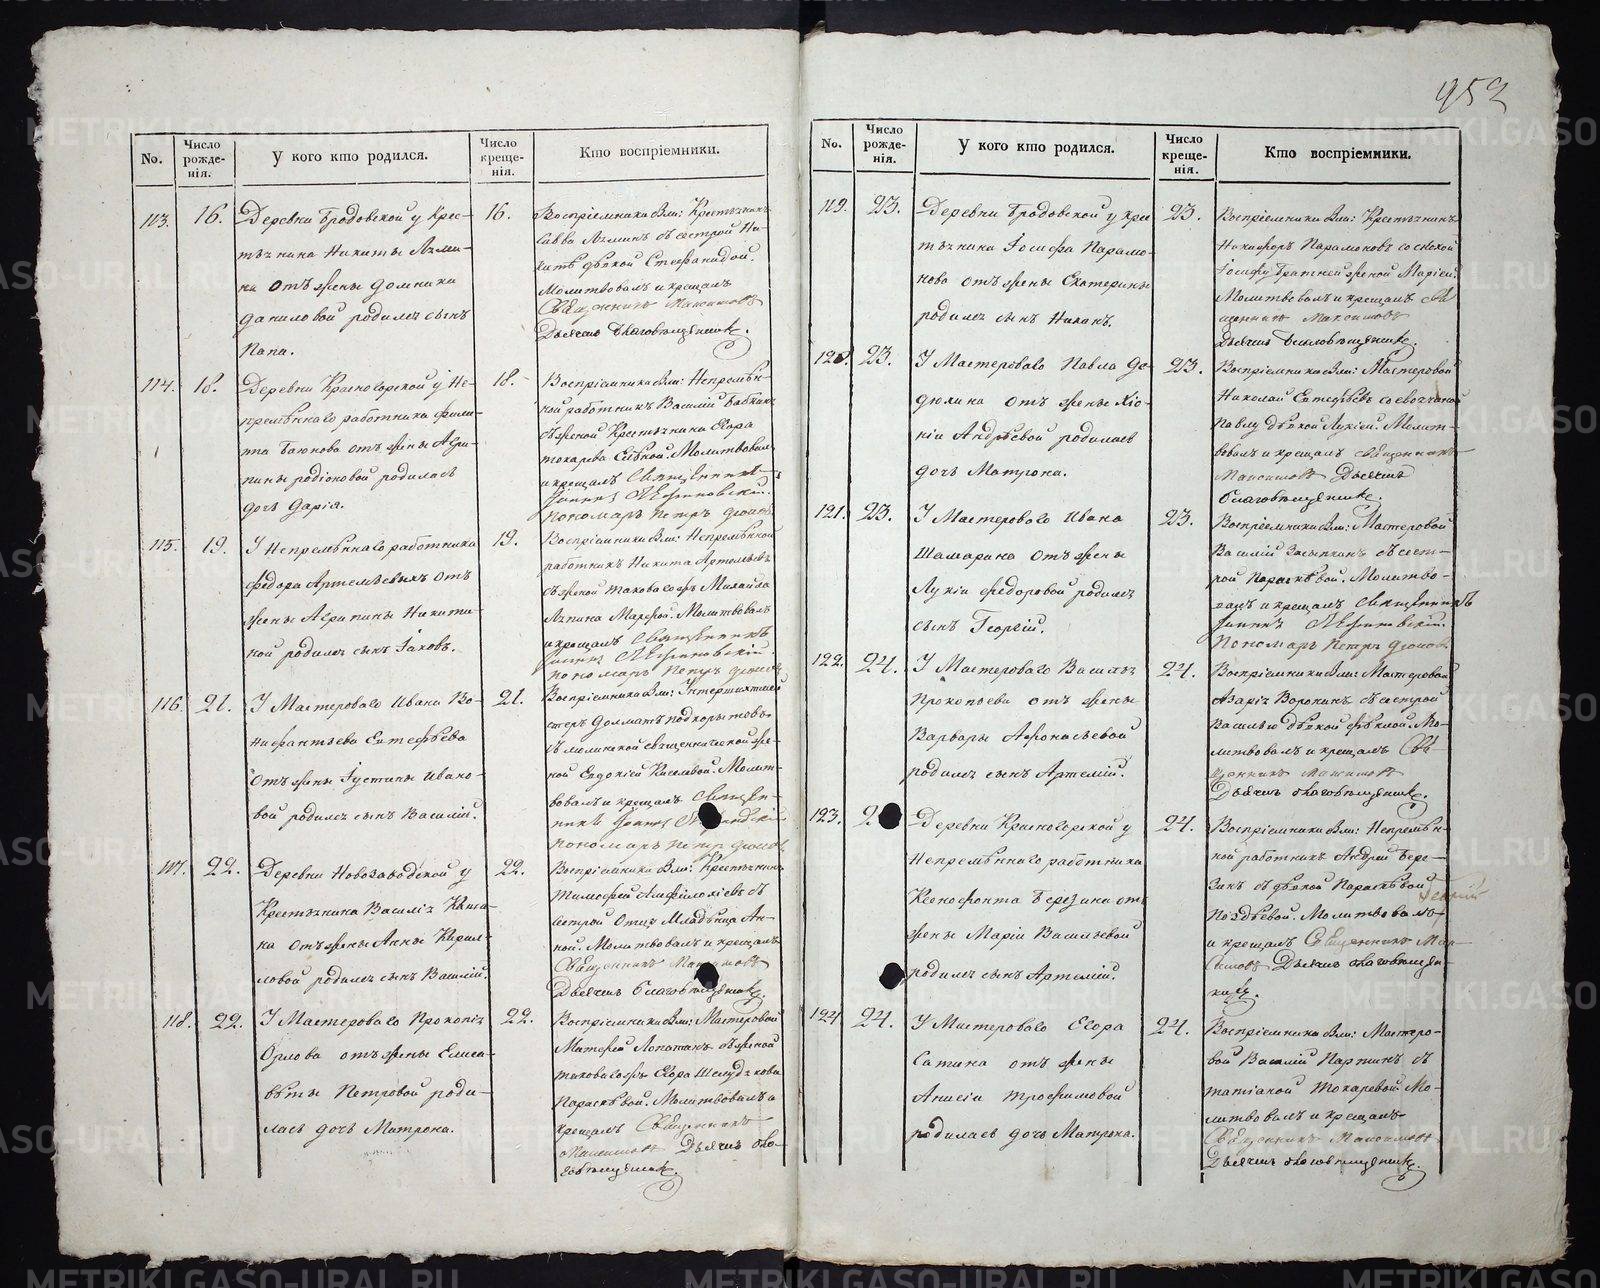 952
No.
Число рожде-нія.
У кого кто родился.
Число креще-нія.
Кто воспріемники.
113.
16.
Деревни Бродовской у крес-
тьянина Никиты
на отъ жены Домники
Даниловой родился сынъ
Папа.
16.
Воспріемники были: Крестьянинъ
Савва съ сестрой Ни-
киты дѣвкой Стефанидой.
Молитвовалъ и крещалъ
Священникъ Максимовъ
Дьячекъ Благовѣщенскій.
114.
18.
Деревни Красногорской у Не-
премѣннаго работника Фили-
ппа Баюнова отъ жены Агри-
пины Родіоновой родилась
дочь Дарія.
18.
Воспріемники были: Непремѣн-
ной работникъ Василій
съ женой Крестьянина Егора
Токарева Еленой. Молитвовалъ
и крещалъ Священникъ
Іоаннъ
Пономарь Петръ
115.
19.
У Непремѣннаго работника
Федора Артемьевыхъ отъ
жены Агрипины Никити-
ной родился сынъ Іаковъ.
19.
Воспріемники были: Непремѣнной
работникъ Никита Артемьевъ
съ женой таковагожъ Михаила
Марѳой. Молитвовалъ
и крещалъ Священникъ
Іоаннъ
Пономарь Петръ
116.
21.
У Мастероваго Ивана Во-
нифантьева Евтефѣева
отъ жены Іустины Ивано-
вой родился сынъ Василій.
21.
Воспріемники были:
Долматъ Подкорытовъ
священнической же-
ной Евдокіей Киселевой. Молит-
вовалъ и крещалъ Священ-
никъ Іоаннъ
Пономарь Петръ
117.
22.
Деревни Новозаводской у
Крестьянина Василія
на отъ жены Анны Кирил-
ловой родился сынъ Василій.
22.
Воспріемники были: Крестьянинъ
Тимофей Амфилохіевъ съ
сестрой Отца Младѣнца Ан-
ной. Молитвовалъ и крещалъ
Священникъ Максимовъ
Дьячекъ Благовѣщенскій.
118.
22.
У Мастероваго Прокопія
Орлова отъ жены Елиса-
вѣты Петровой роди-
лась дочь Матрона.
22.
Воспріемники были: Мастеровой
Матфей Лопатинъ съ женой
таковагожъ Егора Шелудякова
Параскѣвой. Молитвовалъ и
крещалъ Священникъ
Максимовъ Дьячекъ Бла-
говѣщенскій.
No.
Число рожде-нія.
У кого кто родился.
Число креще-нія.
Кто воспріемники.
119.
23.
Деревни Бродовской у крес
тьянина Іосифа Парамо-
нова отъ жены Екатерины
родился сынъ Никанъ.
23.
Воспріемники были: Крестьянинъ
Никифоръ Парамоновъ со снохой
Іосифу Братней женой Маріей.
Молитвовалъ и крещалъ Свя
щенникъ Максимовъ
Дьячекъ Благовѣщенскій.
120.
23.
У Мастероваго Павла Де-
дюхина отъ жены Хіо-
ніи Андрѣевой родилась
дочь Матрона.
23.
Воспріемники были: Мастеровой
Николай Евтефѣевъ со свояченой
Павлу дѣвкой Лукіей. Молит-
вовалъ и крещалъ Священникъ
Максимовъ Дьячекъ
Благовѣщенскій.
121.
23.
У Мастероваго Ивана
Шамарина отъ жены
Лукіи Федоровой родился
сынъ Георгій.
23.
Воспріемники были: Мастеровой
Василій Засыпкинъ съ сест-
рой Параскѣвой. Молитво-
валъ и крещалъ Священникъ
Іоаннъ
Пономарь Петръ
122.
24.
У Мастероваго Василья
Прокопьева отъ жены
Варвары Афонасьевой
родился сынъ Артемій.
24.
Воспріемники были: Мастеровой
Азарія Воронинъ съ сестрой
Василью дѣвкой Фёклой. Мо-
литвовалъ и крещалъ Свя-
щенникъ Максимовъ
Дьячекъ Благовѣщенскій.
123.
2
Деревни Красногорской у
Непремѣннаго работника
Ксенофонта Березина отъ
жены Маріи Васильевой
родился сынъ Артемій.
24.
Воспріемники были: Непремѣн-
ной работникъ Андрей Бере-
зинъ съ дѣвкой Параскѣвой
Поздѣевой. Молитвовалъ
и крещалъ Священникъ Мак-
симовъ Дьячекъ Благовѣщен-
скій.
124
24.
У Мастероваго Егора
Сатина отъ жены
Анисіи Трофимовой
родилась дочь Матрона.
24.
Воспріемники были: Мастеро-
вой Василій Паршинъ съ
Татіаной Токаревой. Мо-
литвовалъ и крещалъ
Священникъ Максимовъ
Дьячекъ Благовѣщенскій.
METRIKI.GASO-URAL.RU